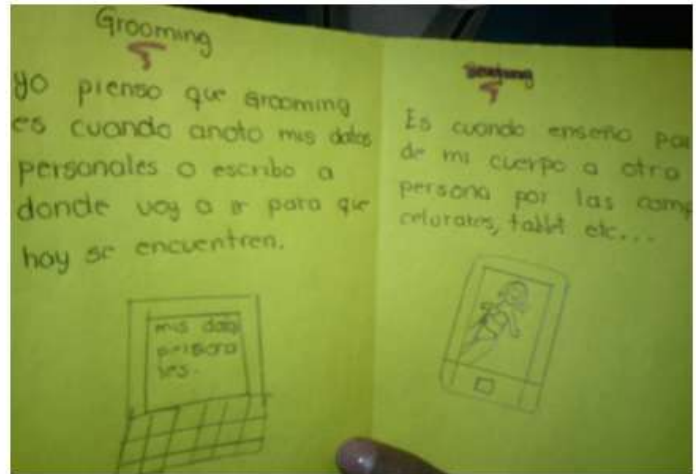 Grooming
yo pienso que Grooming
es cuando anoto mis datos
personales o escribo a
donde voy a ir para que
hoy se encuentren.
mis
Es cuando enseño
de mi cuerpo a otra
persona por las
celurates, tablet etc...